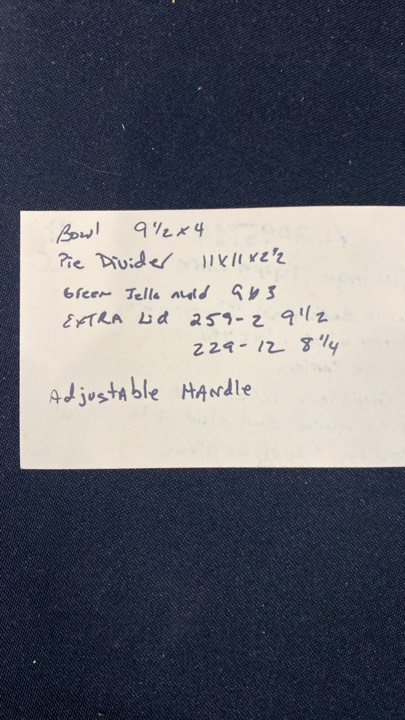 Bowl 9 1/2 x 4
Pie Divider 11 x 11 x 2 1/2
Green Jello mold 9 x 3
EXTRA Lid 259-2 9 1/2
229-12 8 1/4
AdjustAble HANdle